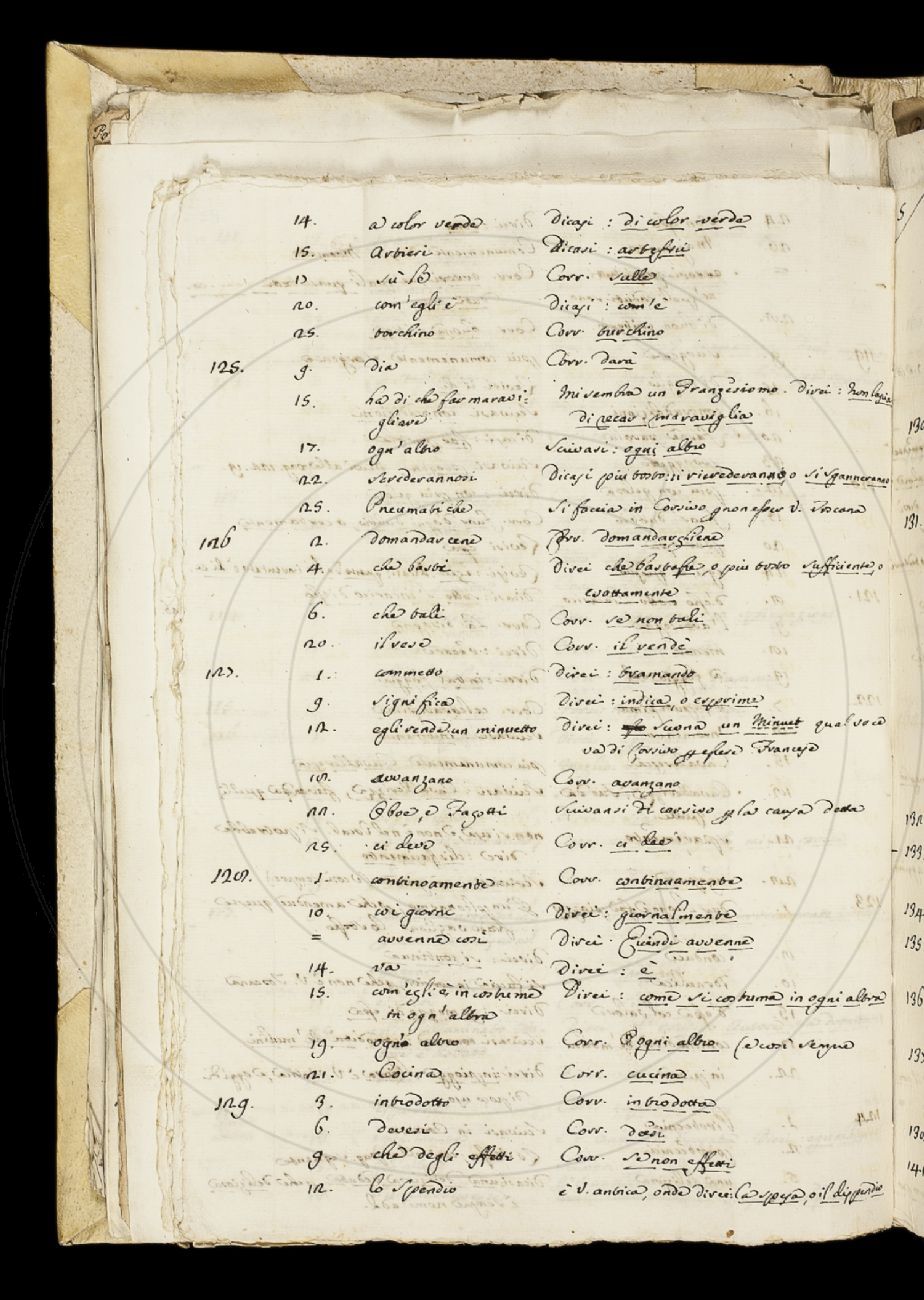 14. a color verde Dicasi : di color verde
15. Arbieri Dicasi :
17 sù le Corr. sulle
20. com'egli è Dicasi : com'è
25. torchino Corr. turchino
125. 9. dia Corr. darà
15. ha di che far maravi-
gliare
Mi sembra un Franzesismo. Direi : non lascia
di recar maraviglia
17. ogn'altro Scrivasi : ogni altro
22. Dicasi più tosto: si ricrederanno, o si sganneranno
25. Pneumatiche Si faccia in Corsivo p non esser V. Toscana
126 2. domandarcene Corr. domandargliene
4. che basti Direi che bastasse, o più tosto sufficiente, o
esattamente
6. che tali Corr. se non tali
20. il rese Corr. il rendè
127. 1. commetto Direi : tramando
9. significa Direi : indica, o esprime
12. egli rende un minuetto Direi : suona un Minuet qual voce
va di Corsivo p essere Francese
18. avvanzano Corr. avanzano
22. Oboe, e Fagotti Scrivansi di corsivo p la causa detta
25. ci deve Corr. ci dee
128. 1. continoamente Corr. continuamente
10. coi giorni Direi : giornalmente
= avvenne così Direi : Quindi avvenne
14. va Direi : è
15. com'egli è in costume
in ogn'altra
Direi : come si costuma in ogni altra
19. ogni altro Corr. Ogni altro (e così sempre
21. Cocina Corr. cucina
129. 3. introdotto Corr. introdotta
6. devesi Corr. deesi
9 che degli effetti Corr. se non effetti
12. lo spendio è V. antica, onde direi: la spesa, o il dispendio